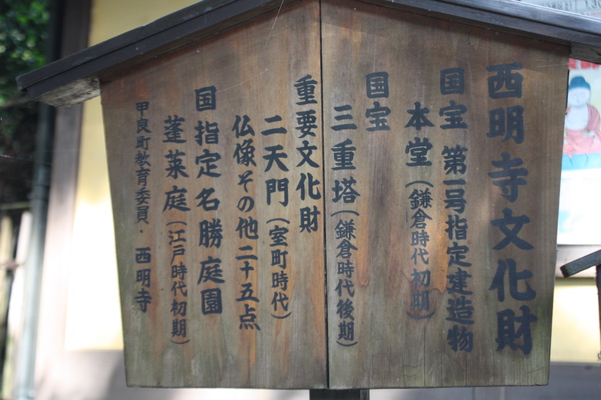 西明寺文化財
国宝 第一号指定建造物
本堂(鎌倉時代初期)
国宝
三重塔(鎌倉時代後期)
重要文化財
二天門(室町時代)
仏像その他二十五点
国指定名勝庭園
蓬莱庭(江戸時代初期)
甲良町教育委員・西明寺